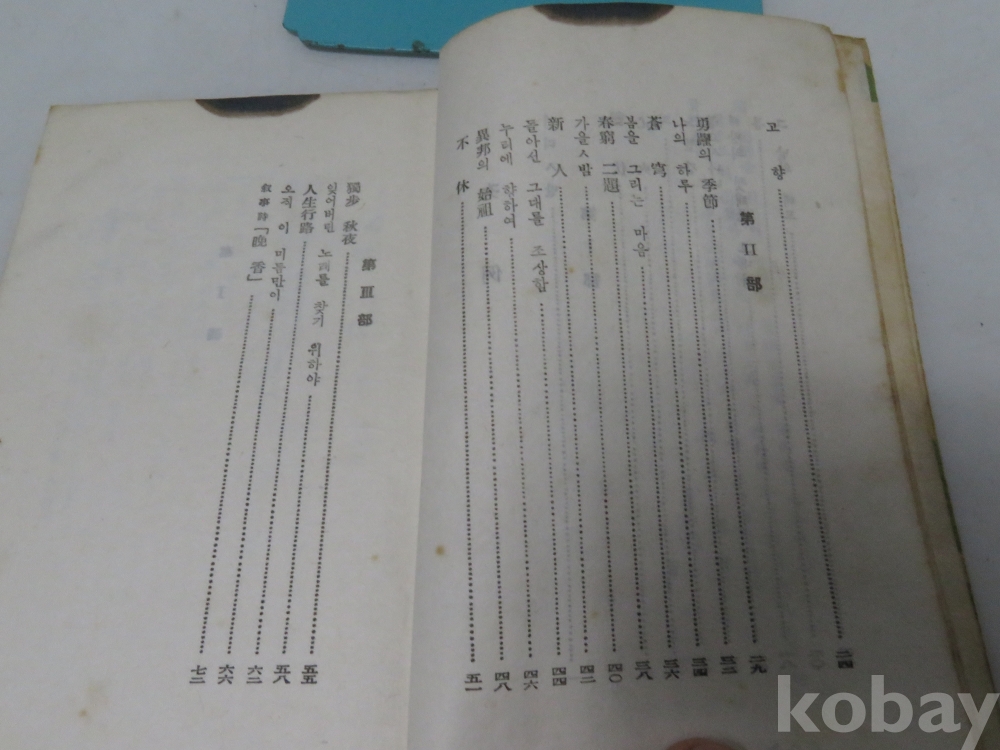 고 향 二四
第 II 部
의 季節 二九
나의 하루 三二
蒼 穹 三四
봄을 그리는 마음 三六
春窮 二題 三八
가을ㅅ밤 四〇
新 人 四二
돌아신 그대를 조상함 四四
누리에 향하여 四六
異邦의 始祖 四八
不 休 五一
第 III 部
獨步 秋夜 五五
잊어버린 노래를 찾기 위하야 五八
人生行路 六二
오직 이 미듬만이 六六
敍事詩「晩 香」 七二
kobay